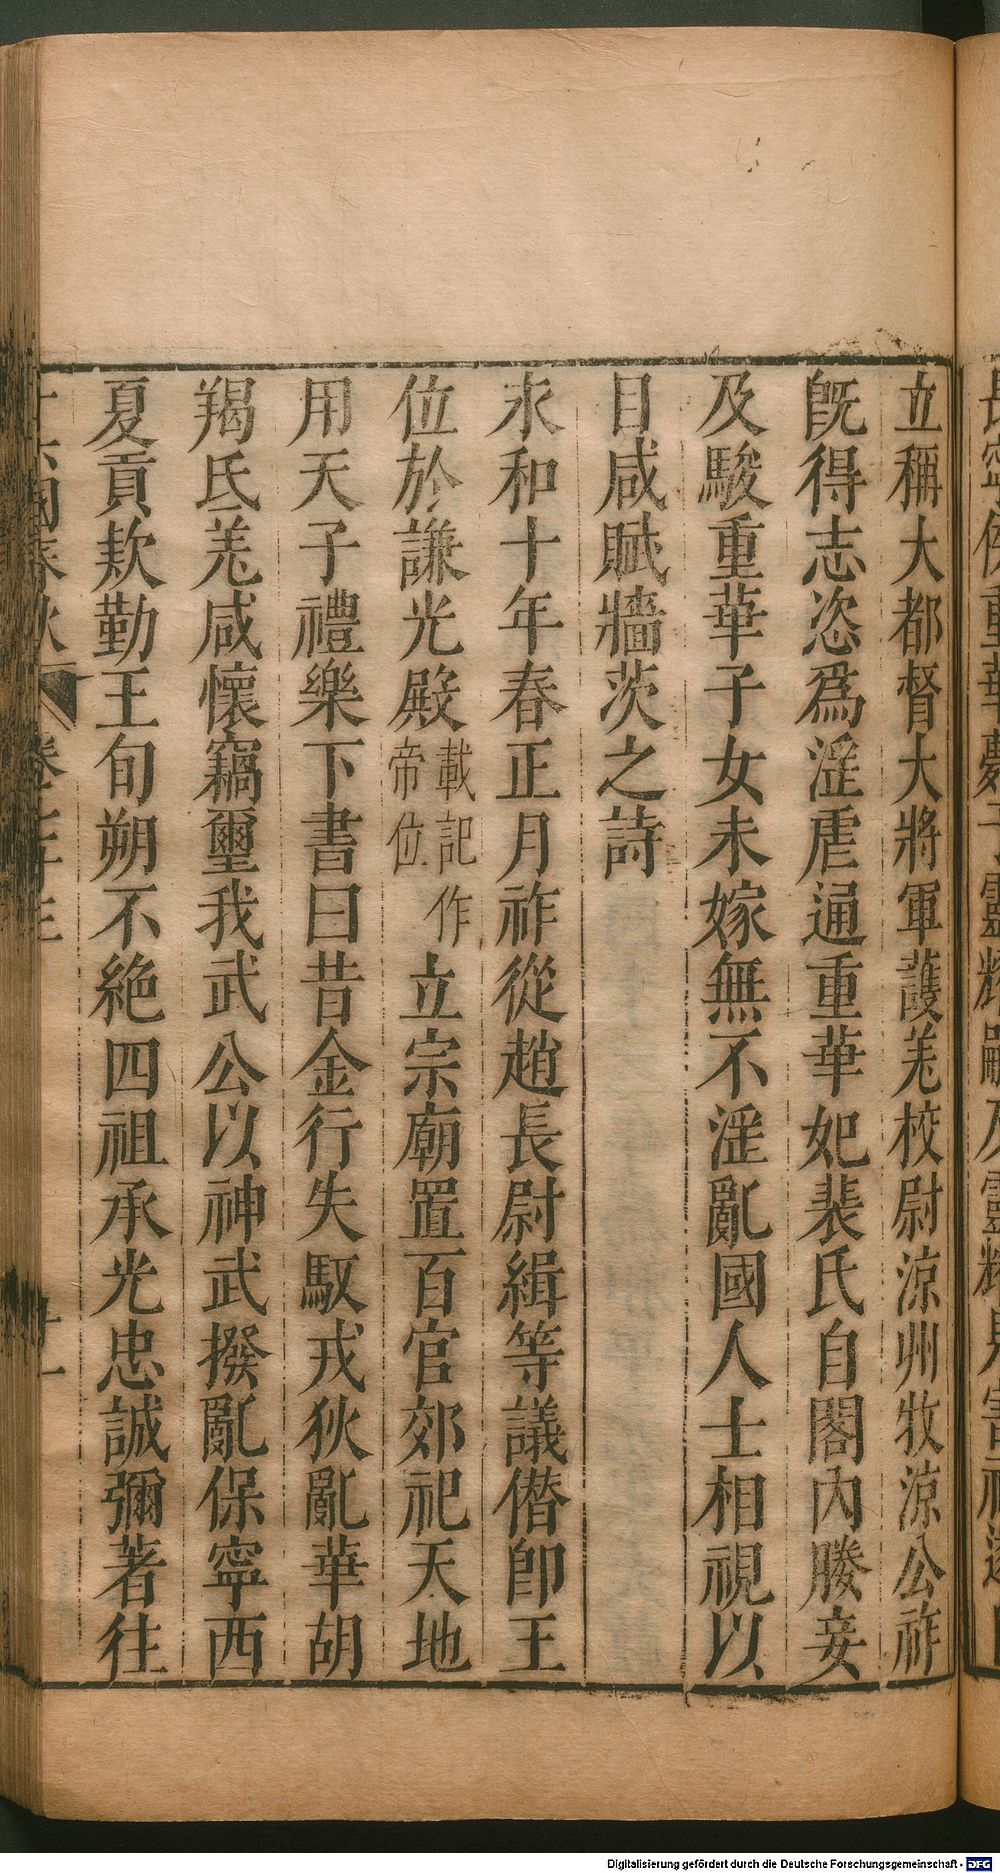 立稱大都督大將軍護羗校尉涼州牧涼公祚
旣得志恣爲淫虐通重華妃裴氏自閤內媵妾
及駿重華子女未嫁無不淫亂國人士相視以
目咸賦牆茨之詩
永和十年春正月祚從趙長尉緝等議僭卽王
位於謙光殿載記作帝位立宗廟置百官郊祀天地
用天子禮樂下書曰昔金行失馭戎狄亂華胡
羯氐羗咸懷竊璽我武公以神武撥亂保寧西
夏貢欵勤王旬朔不絶四祖承光忠誠彌著往
Digitalisierung gefördert durch die Deutsche Forschungsgemeinschaft - DFG